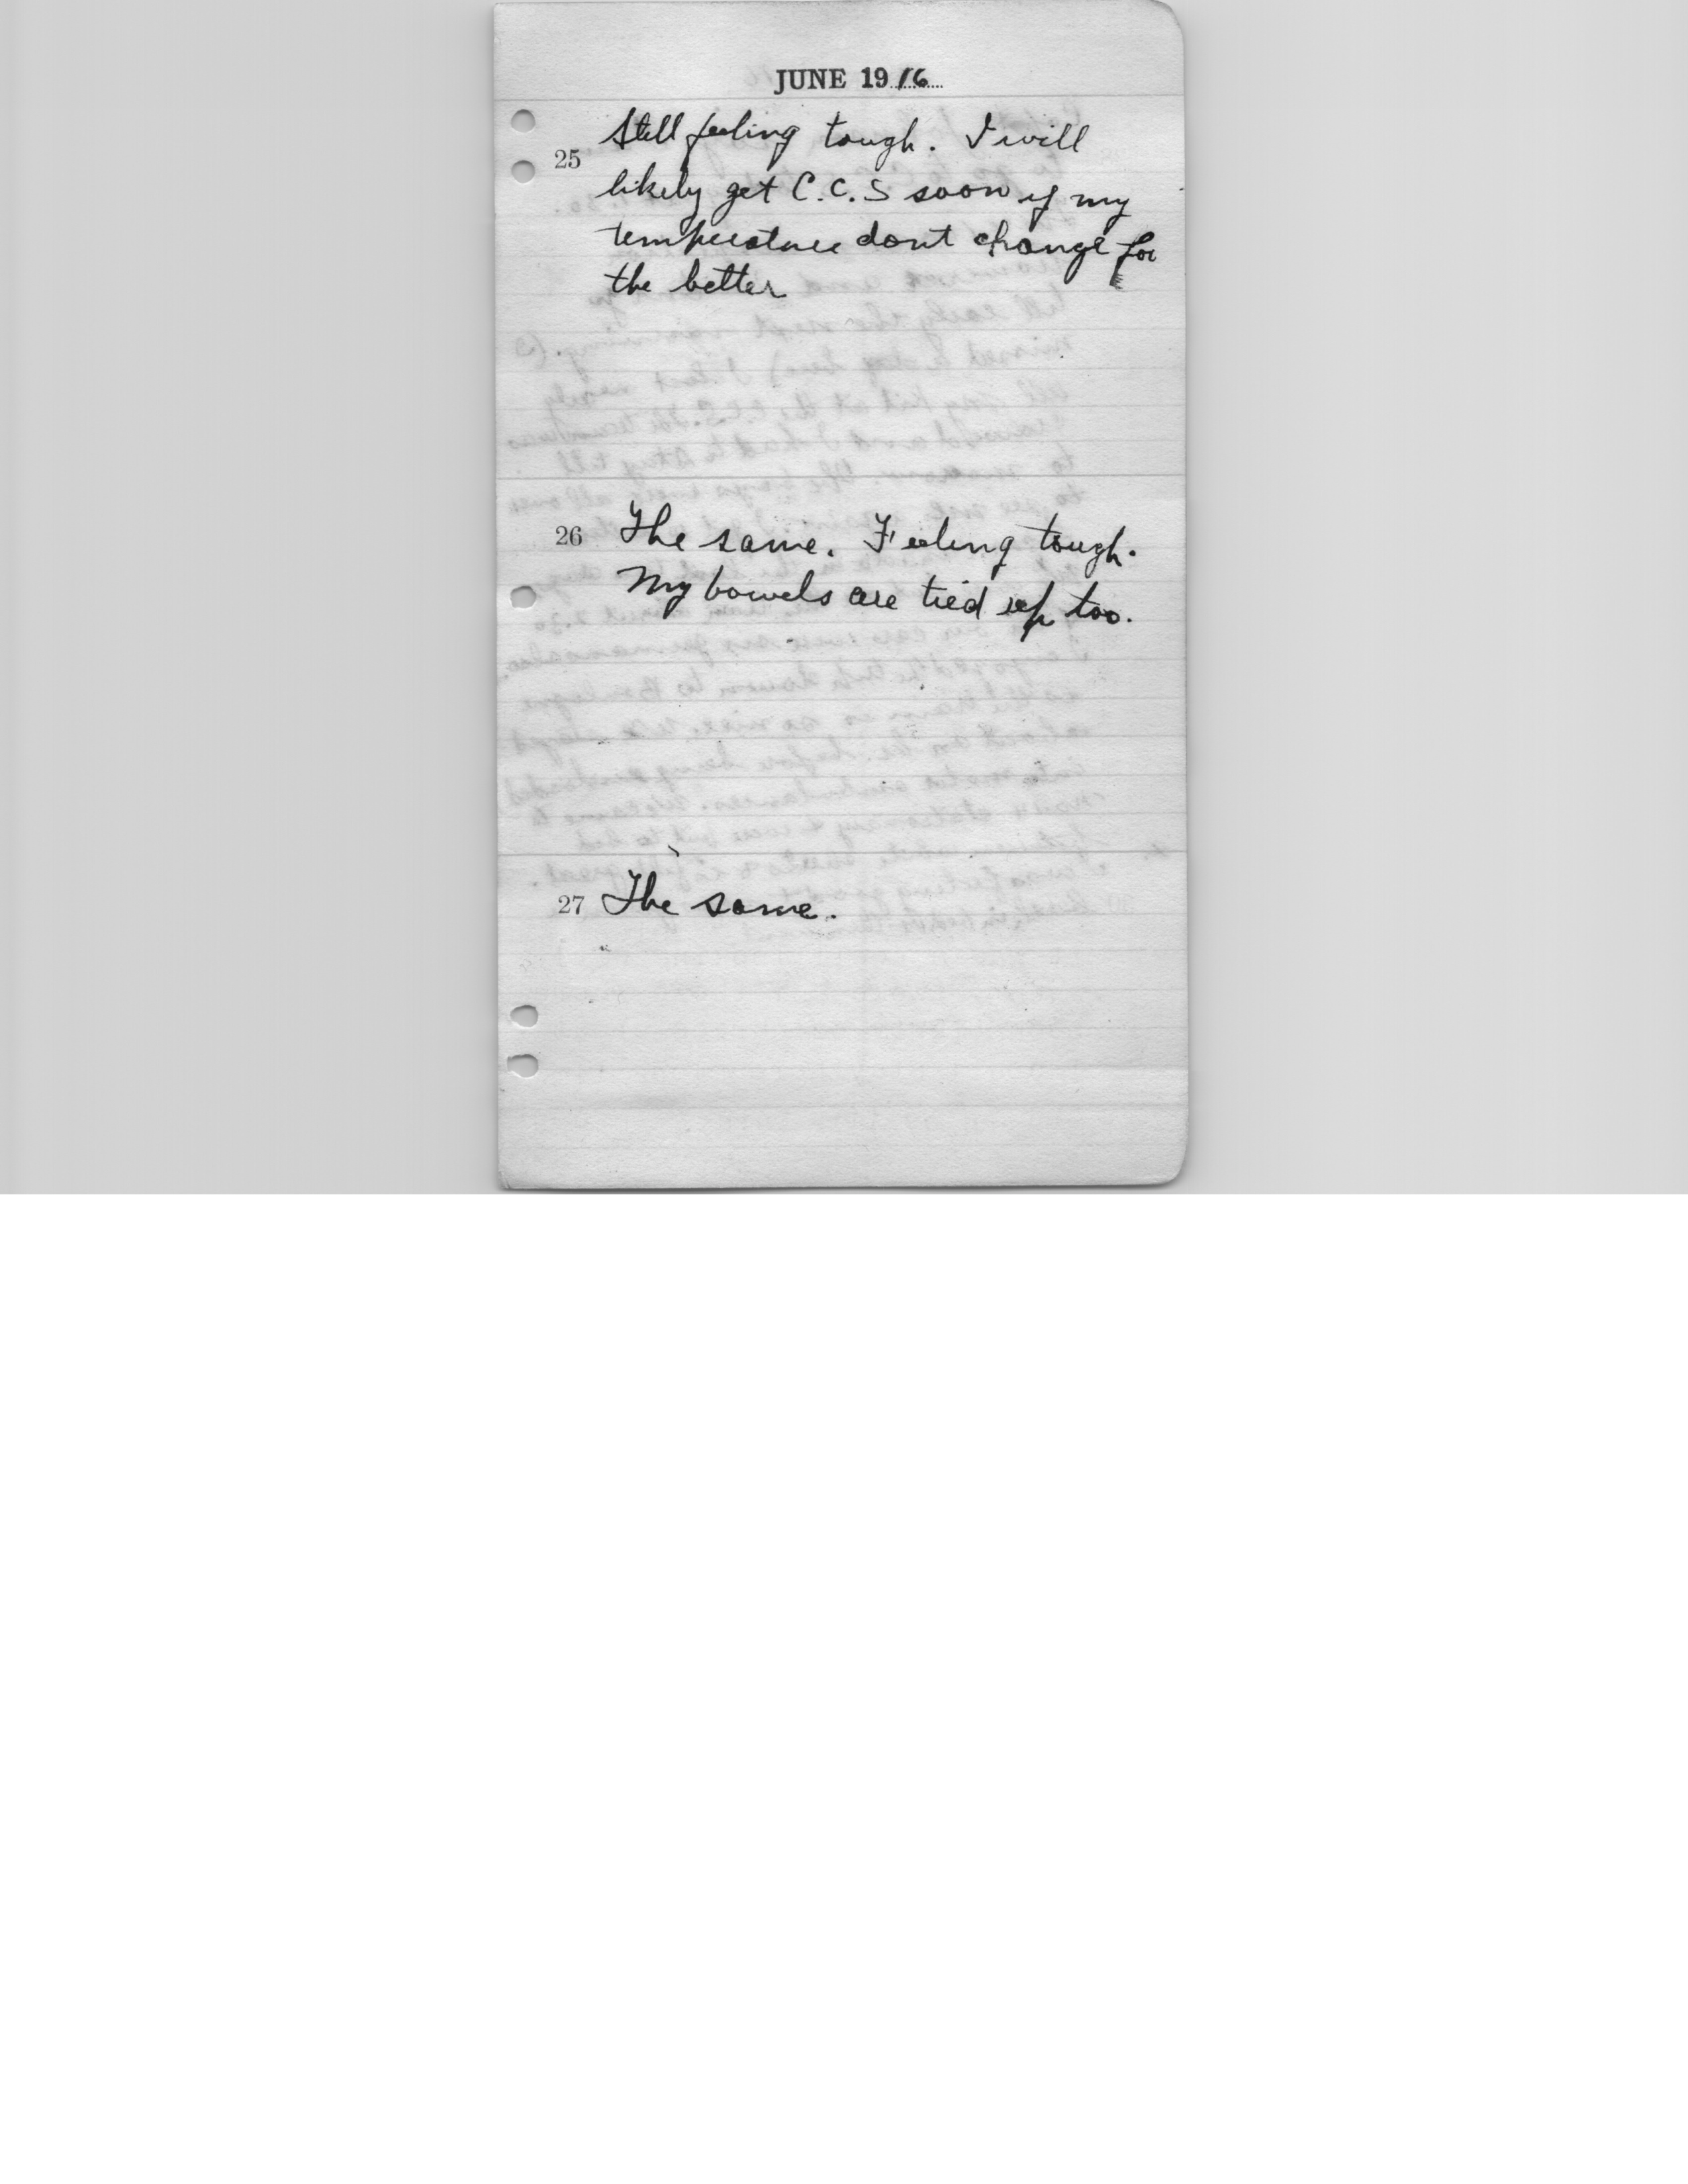 JUNE 1916
25 Still feeling tough. I will
likely get C.C.S soon if my
temperature dont change for
the better
26 The same. Feeling tough.
My bowels are tied up too.
27 The same.